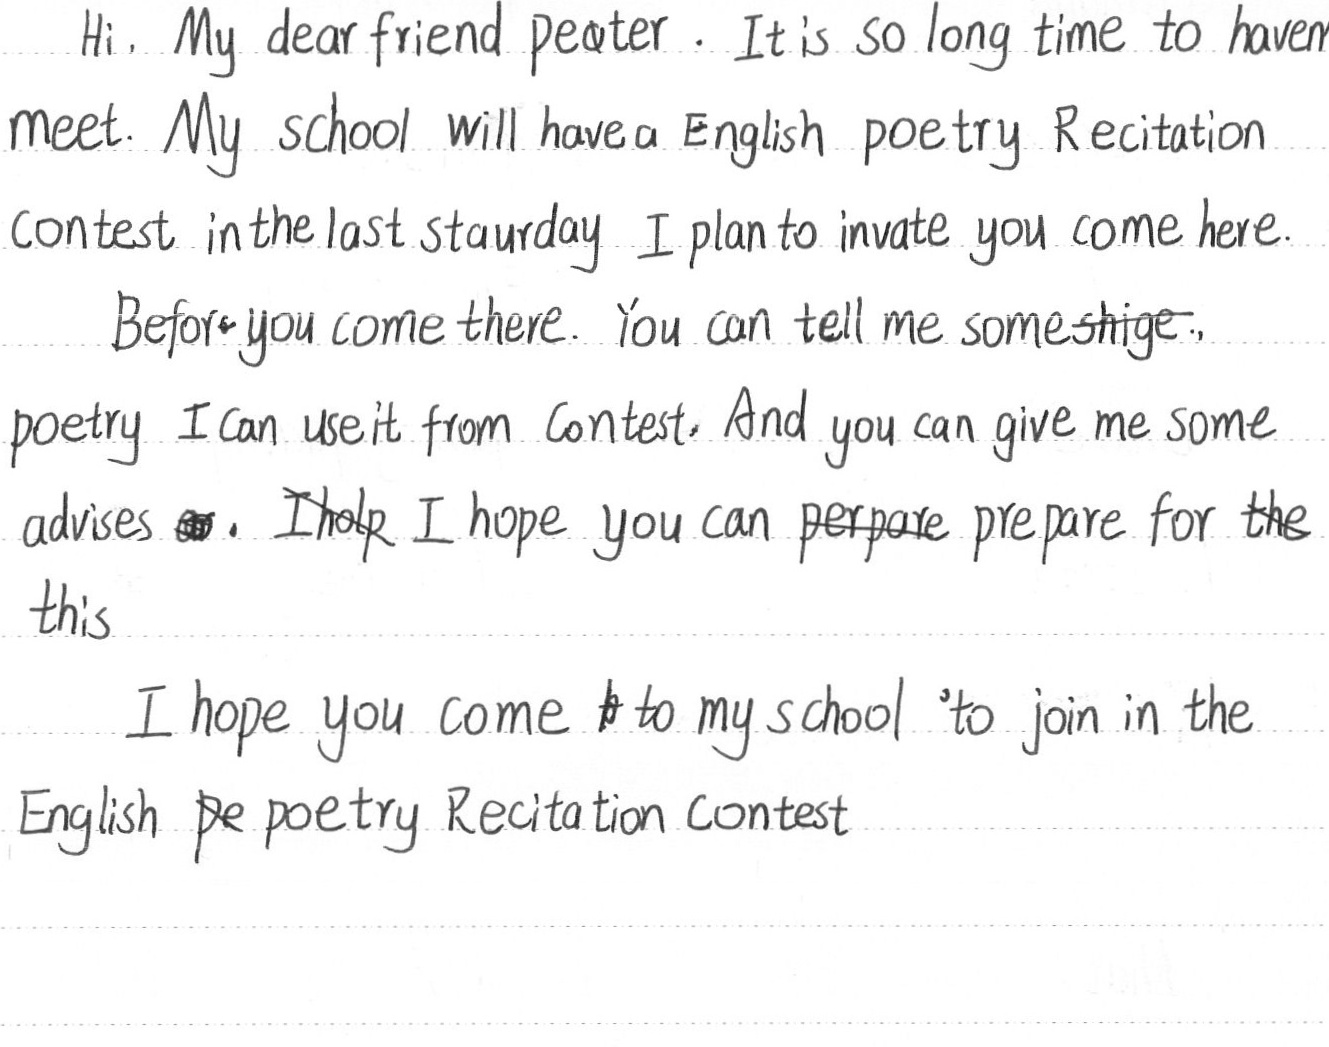 Hi. My dear friend peater. It is so long time to haven
meet. My school will have a English poetry Recitation
Contest in the last staurday I plan to invate you come here.
Before you come there. You can tell me some shige.,
poetry I can use it from Contest. And you can give me some
advises . I holp I hope you can perpare prepare for the
this
I hope you come to my school to join in the
English pe poetry Recitation Contest